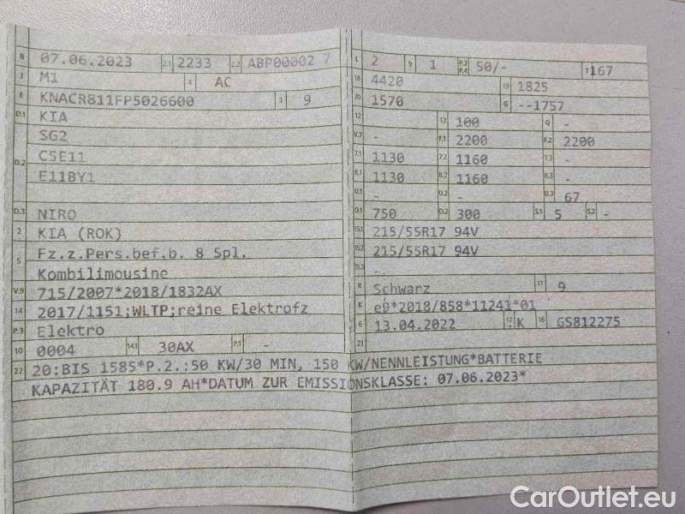 B 07.06.2023 2.1 2233 2.2 ABP00002 7
J M1 4 AC
E KNACR811FP5026600 3 9
D.1 KIA
SG2
D.2 C5E11
E11BY1
D.3 NIRO
2 KIA (ROK)
5 Fz.z.Pers.bef.b. 8 Spl.
Kombilimousine
V.9 715/2007*2018/1832AX
14 2017/1151;WLTP;reine Elektrofz
P.3 Elektro
10 0004 14.1 30AX P.1 -
L 2 9 1 P.2 P.4 50/- T 167
18 4420 19 1825
20 1570 G --1757
12 13 100 Q -
V.7 - F.1 2200 F.2 2200
7.1 1130 7.2 1160 7.3 -
8.1 1130 8.2 1160 8.3 -
U.1 - U.2 - U.3 67
O.1 750 O.2 300 S.1 5 S.2 -
15.1 215/55R17 94V
15.2 215/55R17 94V
15.3 --
R Schwarz 11 9
K e9*2018/858*11241*01
6 13.04.2022 17 K 16 GS812275
21
22 20:BIS 1585*P.2.:50 KW/30 MIN, 150 KW/NENNLEISTUNG*BATTERIE
KAPAZITÄT 180.9 AH*DATUM ZUR EMISSIONSKLASSE: 07.06.2023*
CarOutlet.eu